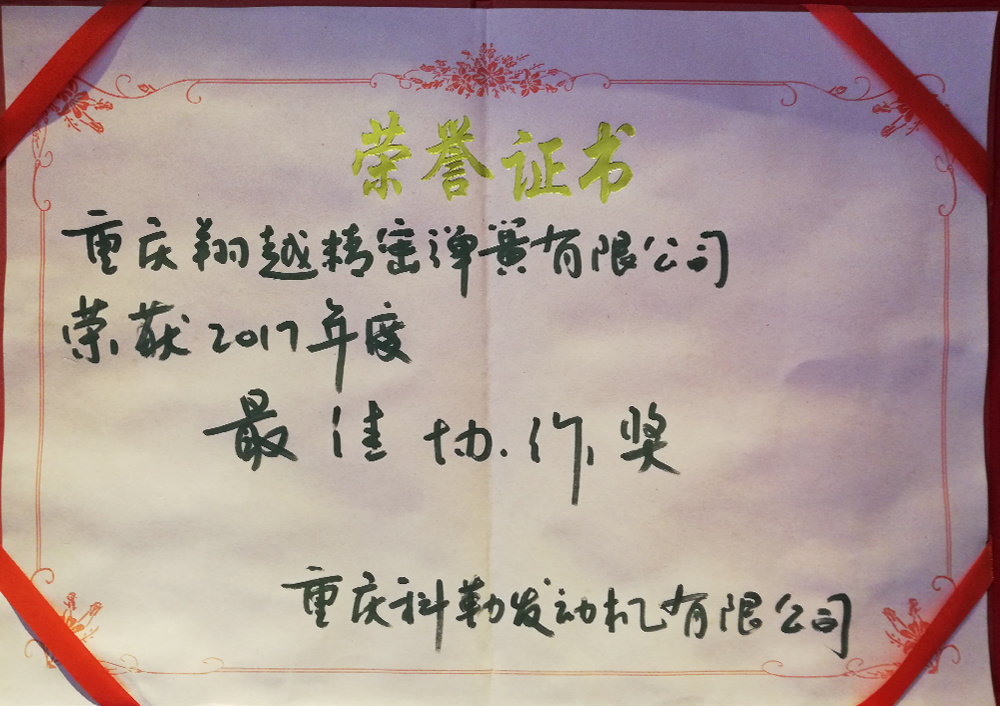 荣誉证书
重庆翔越精密弹簧有限公司
荣获2017年度
最佳协作奖
重庆科勒发动机有限公司